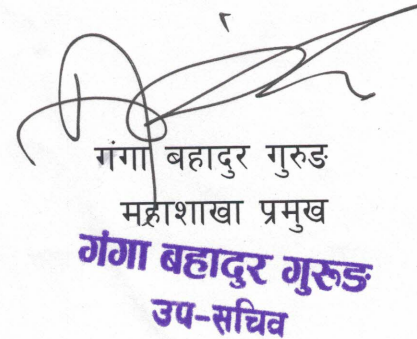 गंगा बहादुर गुरुङ
महाशाखा प्रमुख
गंगा बहादुर गुरुङ
उप-सचिव